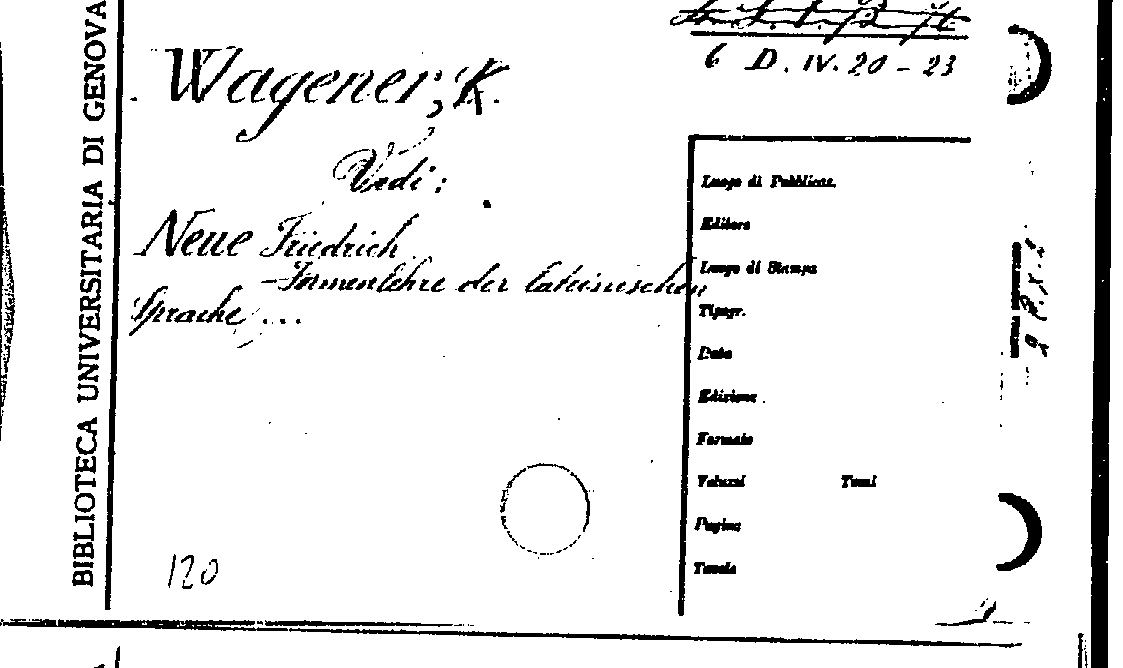 BIBLIOTECA UNIVERSITARIA DI GENOVA
6 D. IV. 20 - 23
Wagener, K.
Vedi:
Neue Friedrich
- Formenlehre der lateinischen
Sprache ...
Luogo di Pubblicaz.
Editore
Luogo di Stampa
Tipogr.
Data
Edizione
Formato
Volumi Tomi
Pagine
Tavole
120